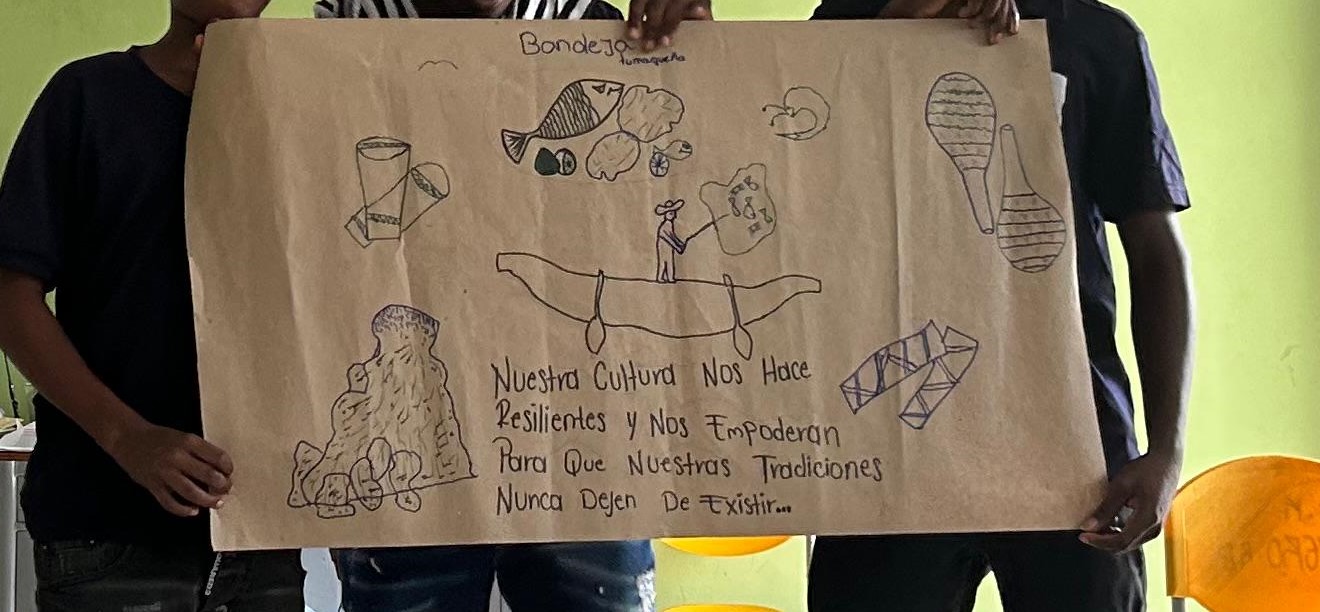 Bondeja
tumaqueña
Nuestra Cultura Nos Hace
Resilientes y Nos Empoderan
Para Que Nuestras Tradiciones
Nunca Dejen De Existir...